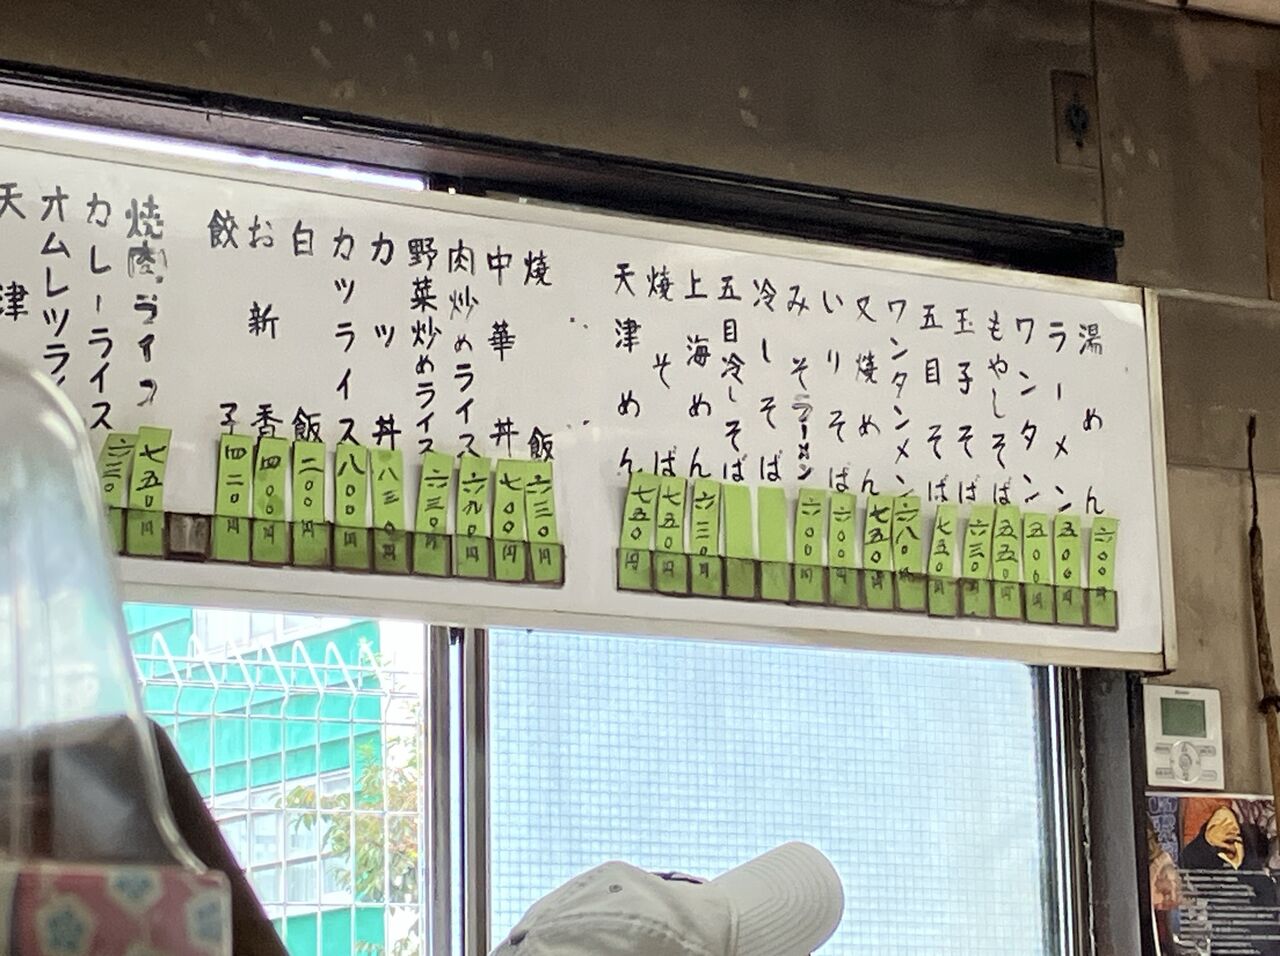 湯めん 六〇〇円
ラーメン 五〇〇円
ワンタン 五〇〇円
もやしそば 五五〇円
玉子そば 六三〇円
五目そば 七五〇円
ワンタンメン 六八〇円
叉焼めん 七五〇円
いりそば 六〇〇円
みそラーメン 六〇〇円
冷しそば
五目冷しそば
上海めん 六三〇円
焼そば 七五〇円
天津めん 七五〇円
焼飯 六三〇円
中華丼 七〇〇円
肉炒めライス 六九〇円
野菜炒めライス 六三〇円
カツ丼 八三〇円
カツライス 八〇〇円
白飯 二〇〇円
お新香 四〇〇円
餃子 四二〇円
焼肉ライス 七五〇円
カレーライス 六三〇
オムレツライ
天津